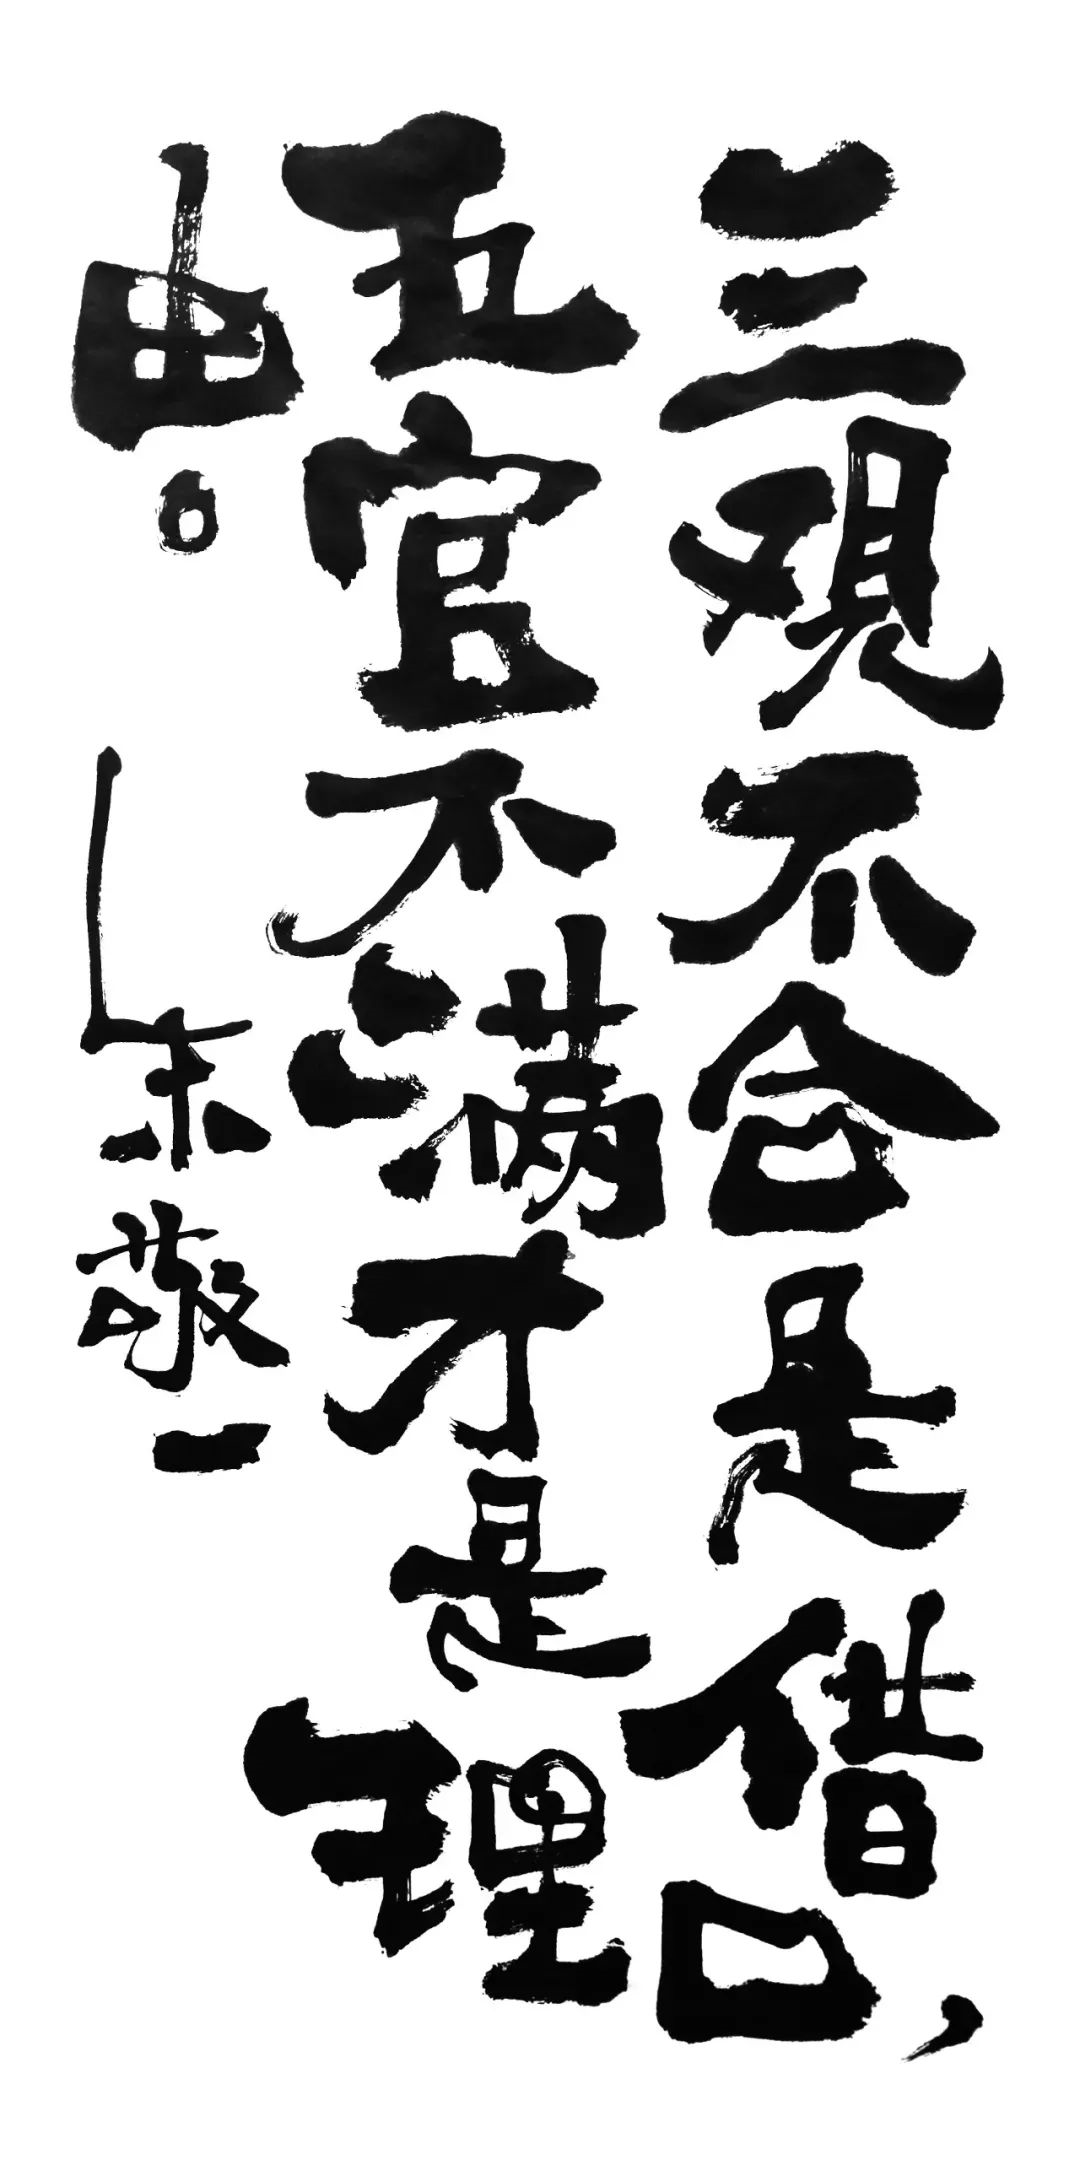 三观不合是借口，
五官不满才是理
由。朱敬一